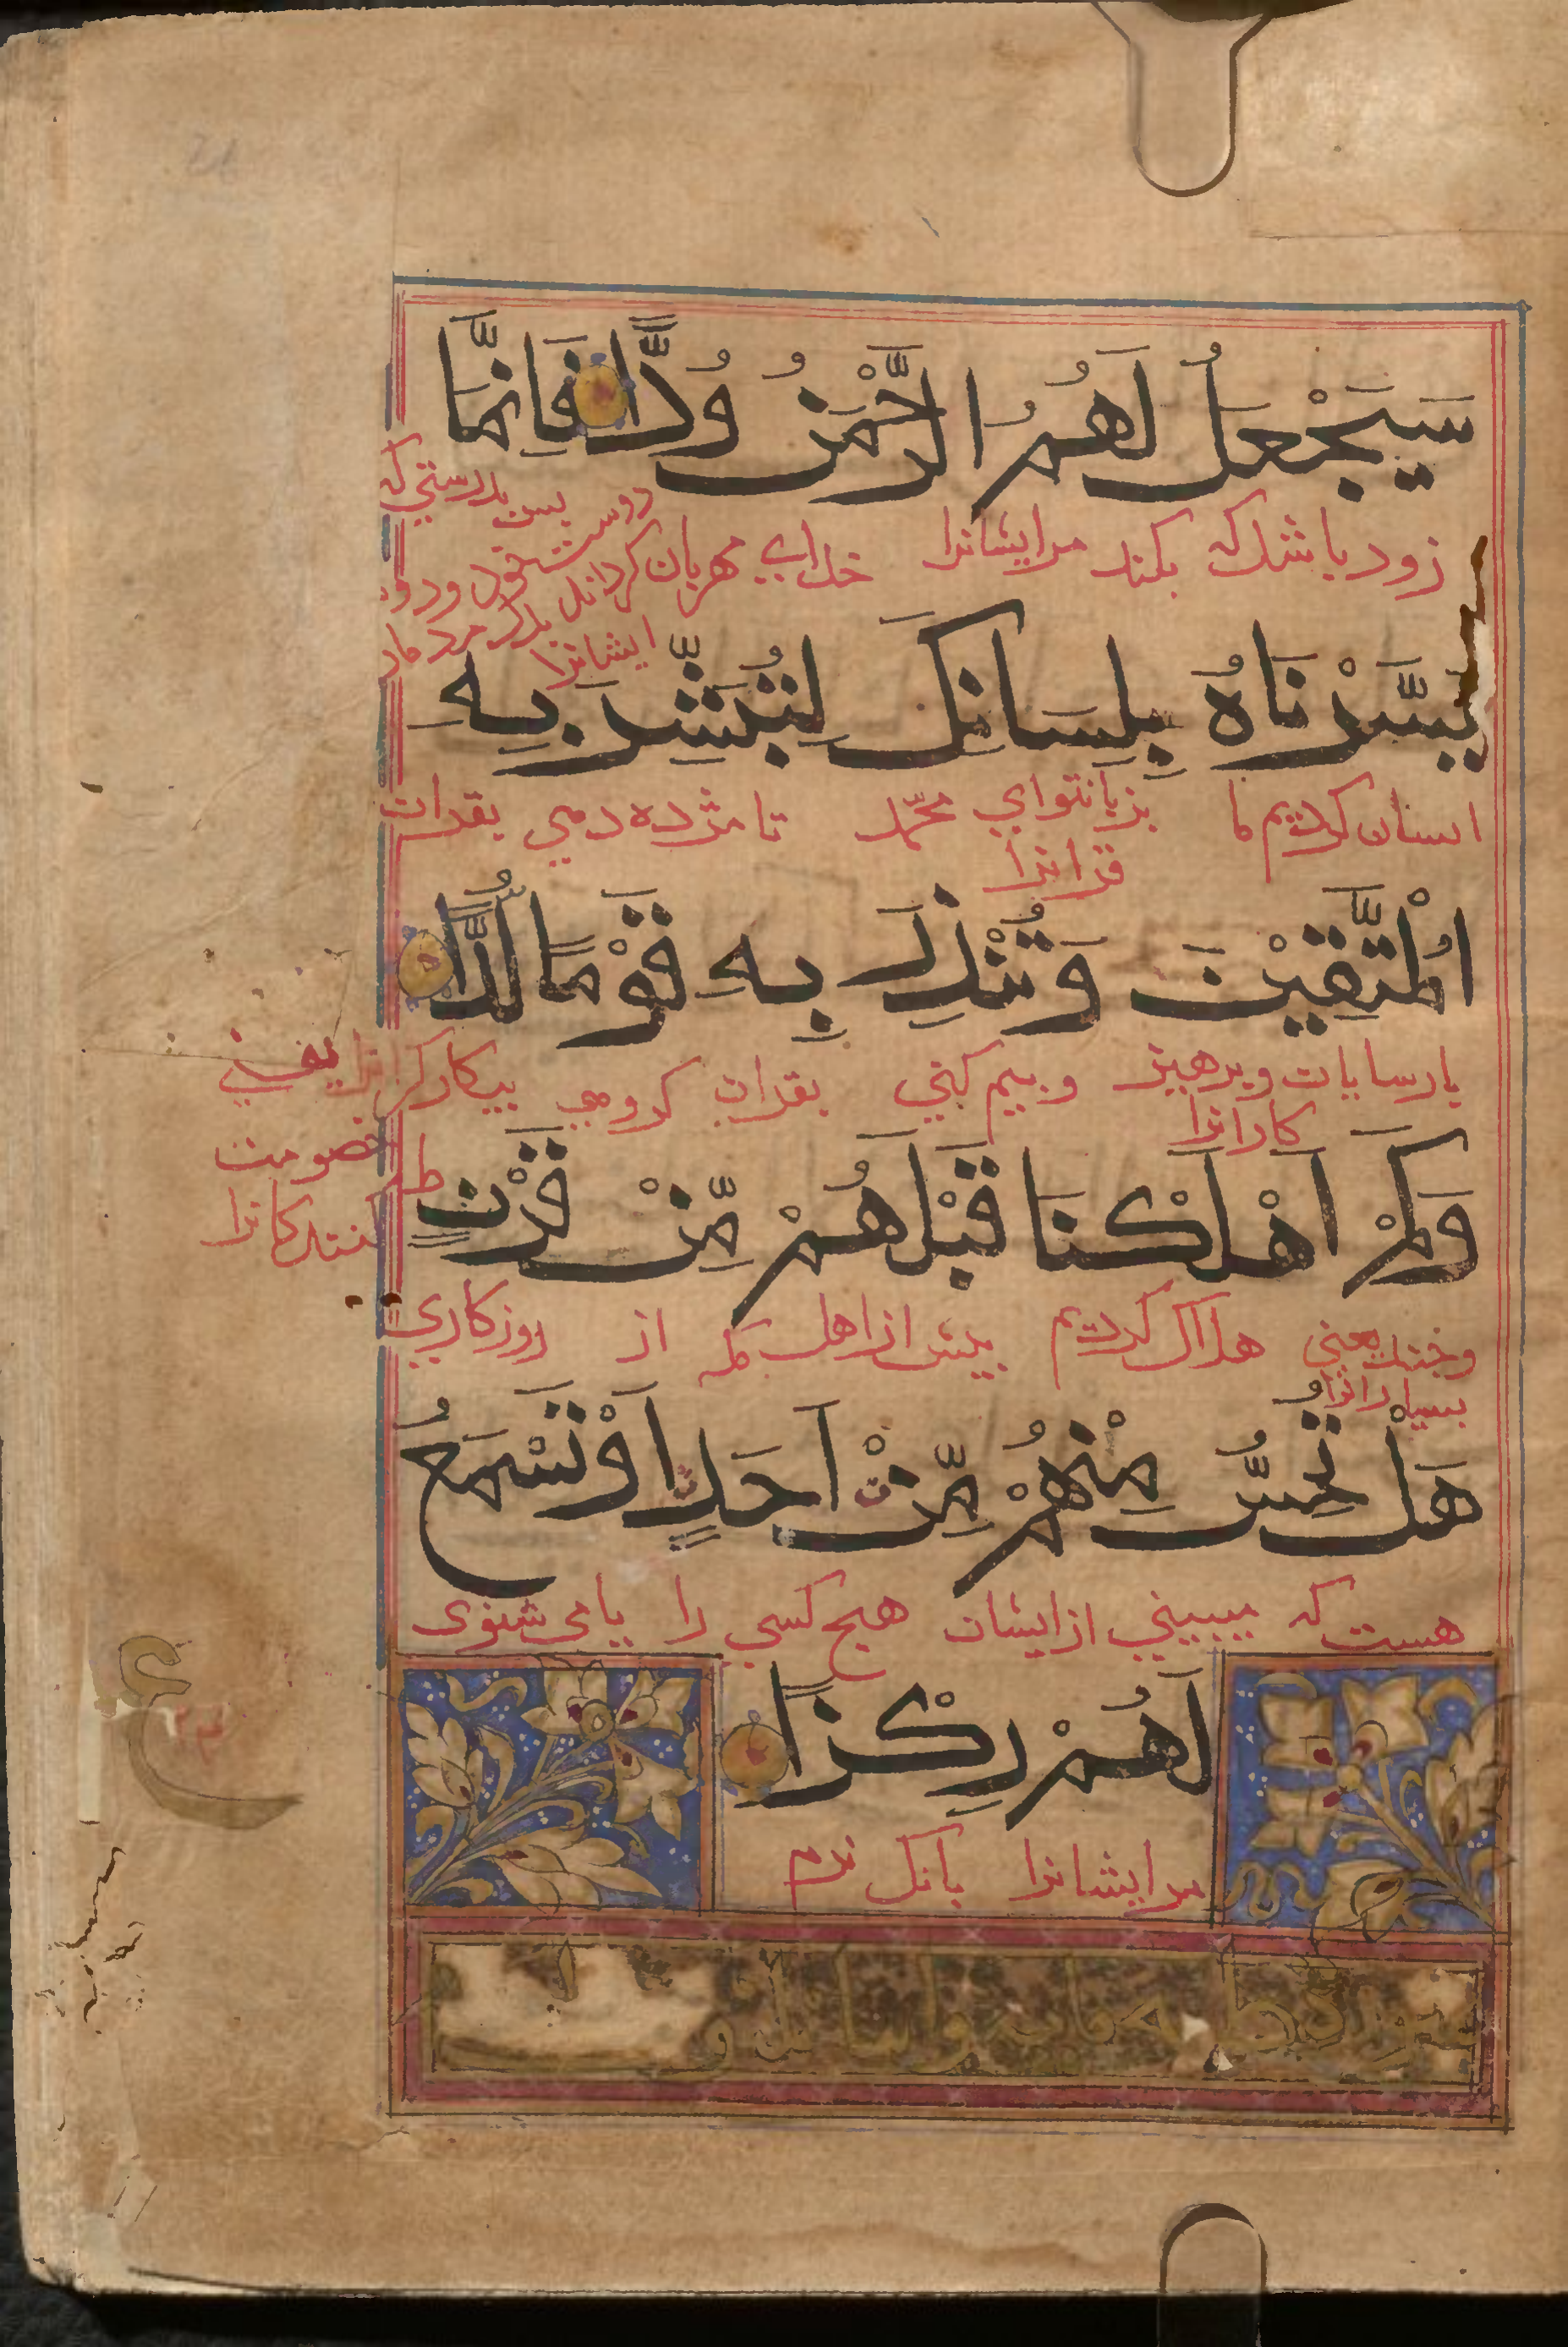 سَيَجْعَلُ لَهُمُ الرَّحْمٰنُ وُدًّا فَاِنَّمَا
زود باشد که بکند مرایشانرا خدای مهربان
دوست بس بدرستی که
ایشانرا
يَسَّرْنَاهُ بِلِسَانِكَ لِتُبَشِّرَ بِهِ
اسان کردیم ما بزبان تو ای محمّد تا مژده دهی بقران
قرانرا
الْمُتَّقِيْنَ وَتُنْذِرَ بِهِ قَوْمًا لُّدًّا
پارسایان وپرهیز وبیم کنی بقران کروهی بیکارکرانرا یعنی
کارانرا
خصومت
کنندکانرا
وَكَمْ اَهْلَكْنَا قَبْلَهُمْ مِّنْ قَرْنٍ
وجند یعنی هلاک کردیم بیش از اهل مکه از روزکاری
بسیارانرا
هَلْ تُحِسُّ مِنْهُمْ مِّنْ اَحَدٍ اَوْ تَسْمَعُ
هست که میبینی از ایشان هیج کسی را یا می شنوی
لَهُمْ رِكْزًا
مرایشانرا بانک نرم
ع